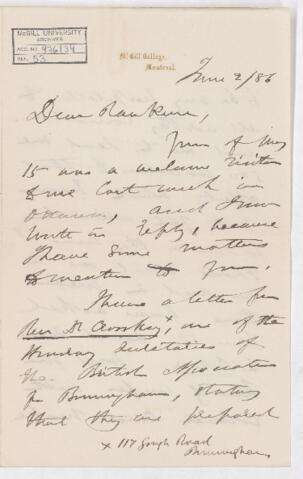 McGILL UNIVERSITY
ARCHIVES
ACC. NO. 976/34
REF. 53
McGill College,
Montreal.
June 2/86
Dear Rankine,
Yours of May
15 was a welcome visitor
last week in
Ottawa, and I now
write in reply, because
I have some matters
to mention to you.
I have a letter from
Rev Dr Crosskey x, one of the
Secretaries of
the British Association
for Birmingham, stating
that they are prepared
x 117 Gough Road
Birmingham